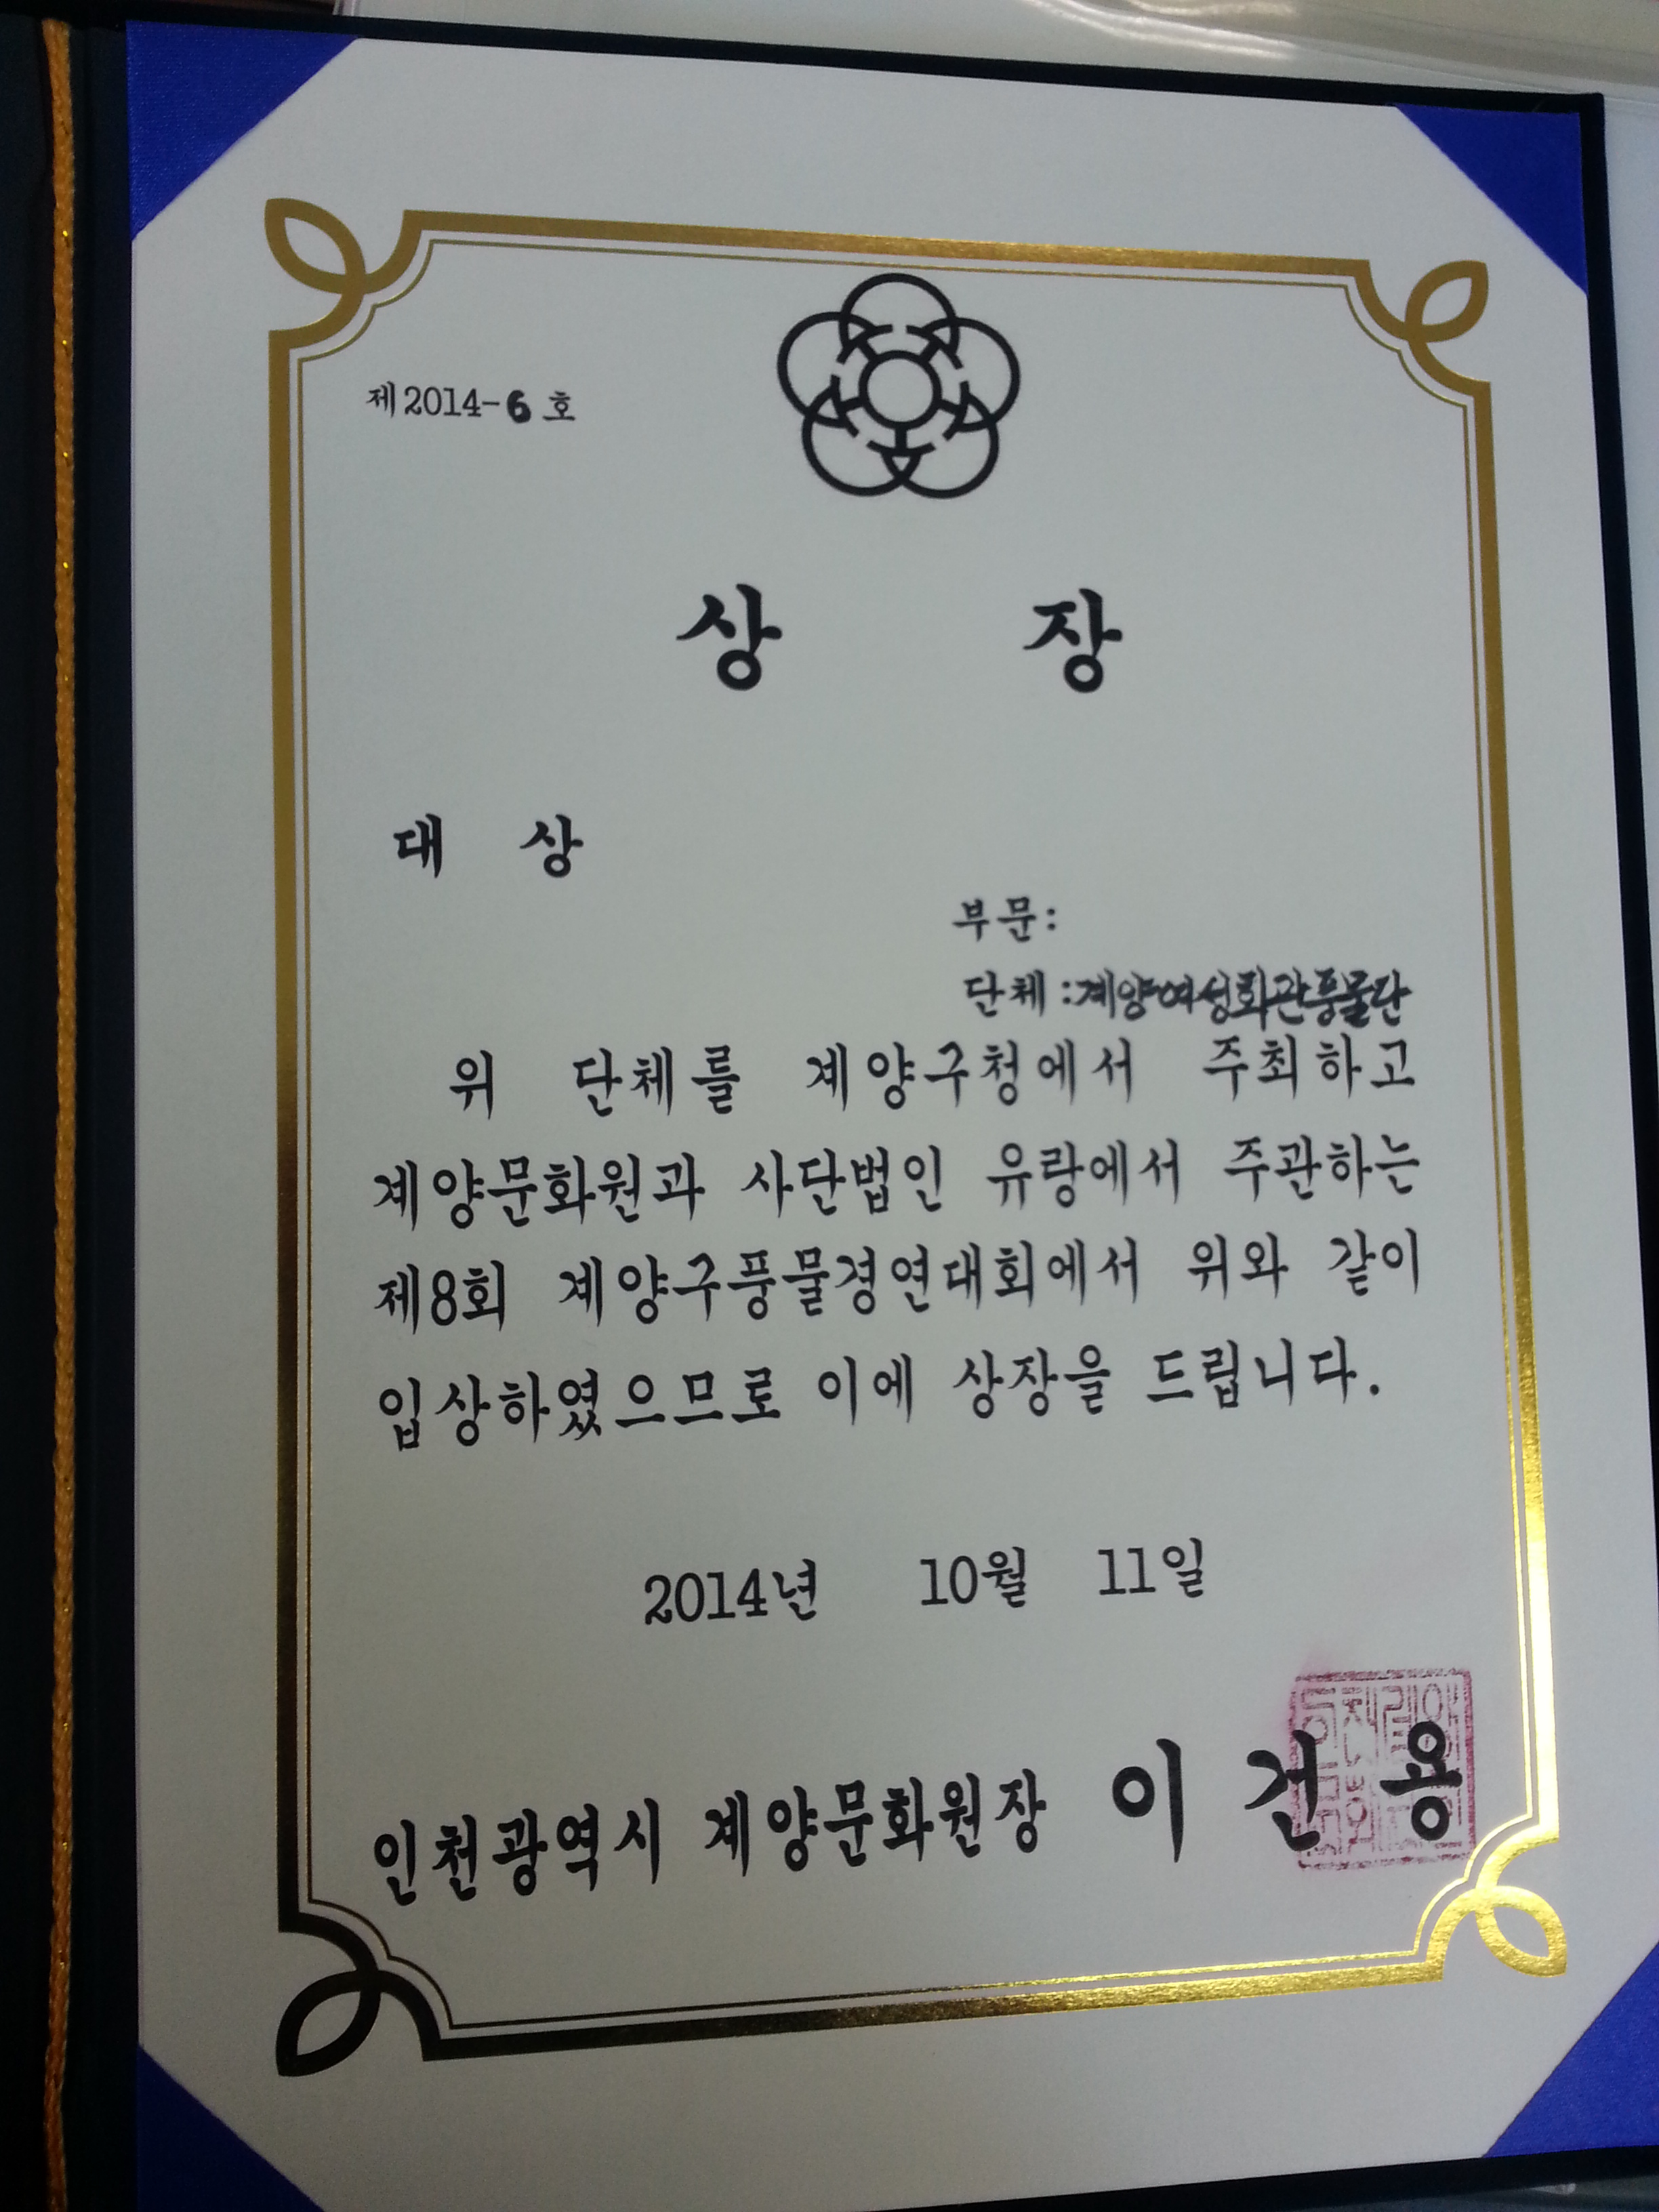 제2014-6 호
상 장
대 상
부문:
단체:계양여성회관풍물단
위 단체를 계양구청에서 주최하고
계양문화원과 사단법인 유랑에서 주관하는
제8회 계양구풍물경연대회에서 위와 같이
입상하였으므로 이에 상장을 드립니다.
2014년 10월 11일
인천광역시 계양문화원장 이 건 용